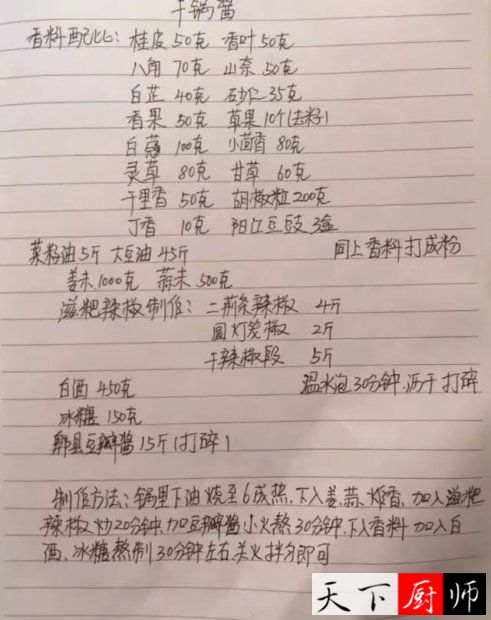 干锅酱
香料配比: 桂皮 50克 香叶 50克
八角 70克 山奈 50克
白芷 40克 砂仁 35克
香果 50克 草果 10个(去籽)
白蔻 100克 小茴香 80克
灵草 80克 甘草 60克
千里香 50克 胡椒粒 200克
丁香 10克 阳江豆豉 3盒
菜籽油 5斤 大豆油 45斤 同上香料打成粉
姜末 1000克 蒜末 500克
滋粑辣椒制作: 二荆条辣椒 4斤
圆灯笼椒 2斤
干辣椒段 5斤
白酒 450克 温水泡30分钟.沥干 打碎
冰糖 150克
郫县豆瓣酱 15斤(打碎)
制作方法: 锅里下油 烧至6成热,下入姜、蒜、炸香,加入滋粑
辣椒 炒20分钟,加豆瓣酱小火熬30分钟,下入香料 加入白
酒、冰糖熬制30分钟左右,关火拌匀即可
天下厨师